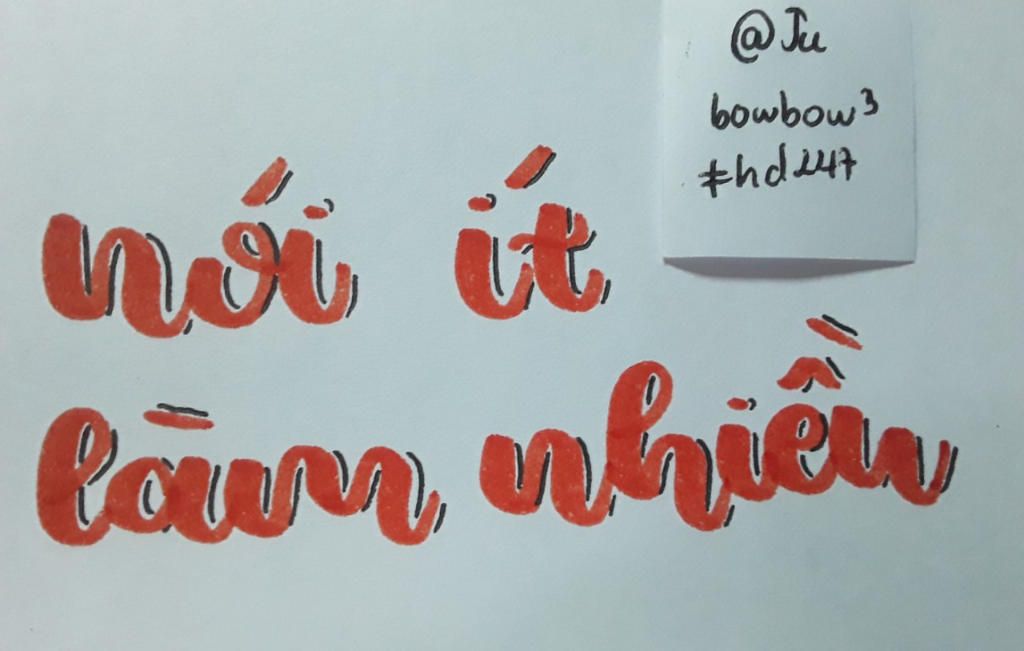 @Ju
bowbow3
#hd247
nói ít
làm nhiều